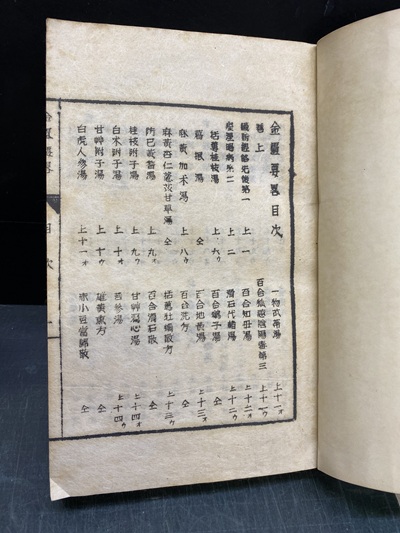 金匱要畧目次
巻上
臓腑経絡先後第一　上一
痙湿暍病第二　上二
括蔞桂枝湯　上六ウ
葛根湯　仝
麻黄加朮湯　上八ウ
麻黄杏仁薏苡甘草湯　仝
防已黄耆湯　上九オ
桂枝附子湯　上九ウ
白朮附子湯　上十オ
甘艸附子湯　上十ウ
白虎人参湯　上十一オ
一物瓜蒂湯　上十一オ
百合狐惑陰陽毒第三　上十一ウ
百合知母湯　上十二オ
滑石代赭湯　上十二ウ
百合鶏子湯　仝
百合地黄湯　上十三オ
百合洗方　仝
括蔞牡蛎散方　上十三ウ
百合滑石散　仝
甘艸瀉心湯　上十四オ
苦参湯　上十四ウ
雄黄熏方　仝
赤小豆當歸散　仝
金匱要畧　目次　一